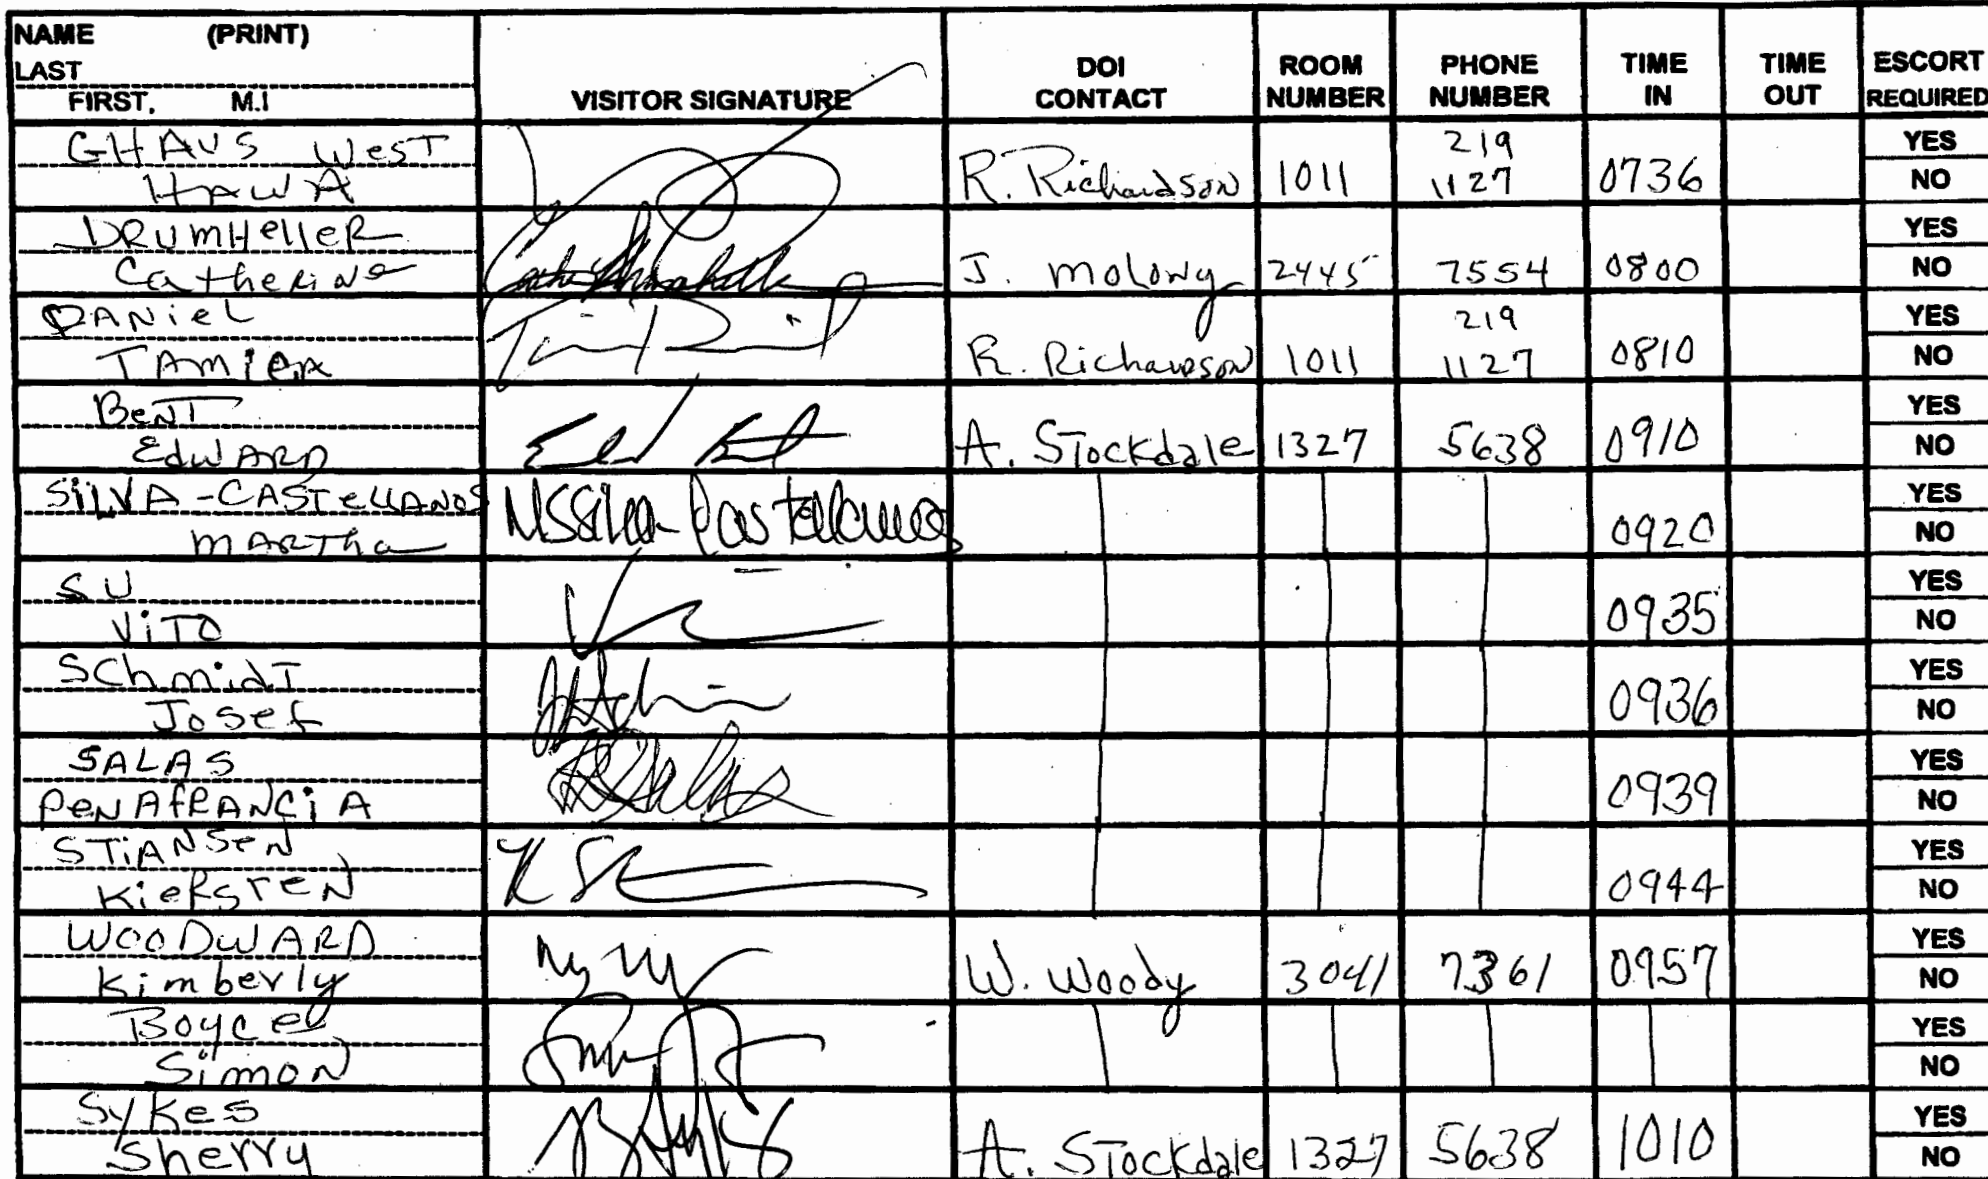 NAME (PRINT)
LAST
FIRST, M.I
VISITOR SIGNATURE
DOI
CONTACT
ROOM
NUMBER
PHONE
NUMBER
TIME
IN
TIME
OUT
ESCORT
REQUIRED
GHAUS WesT
HAWA
R. Richardson
1011
219
1127
0736
YES
NO
DRUMHelleR
CatheRiNe
J. Molony
2445
7554
0800
YES
NO
DANieL
R. Richardson
1011
219
1127
0810
YES
NO
BeNT
EdwARD
A. STockdale
1327
5638
0910
YES
NO
SiLVA-CASTeLLANOS
MARTha
0920
YES
NO
SU
ViTO
0935
YES
NO
SChmidT
Josef
0936
YES
NO
SALAS
PeNAfRANCiA
0939
YES
NO
STiANSeN
KieRSTeN
0944
YES
NO
WOODWARD
Kimberly
W. Woody
3041
7361
0957
YES
NO
Boyce
SimoN
YES
NO
Sykes
Sherry
A. STockdale
1327
5638
1010
YES
NO